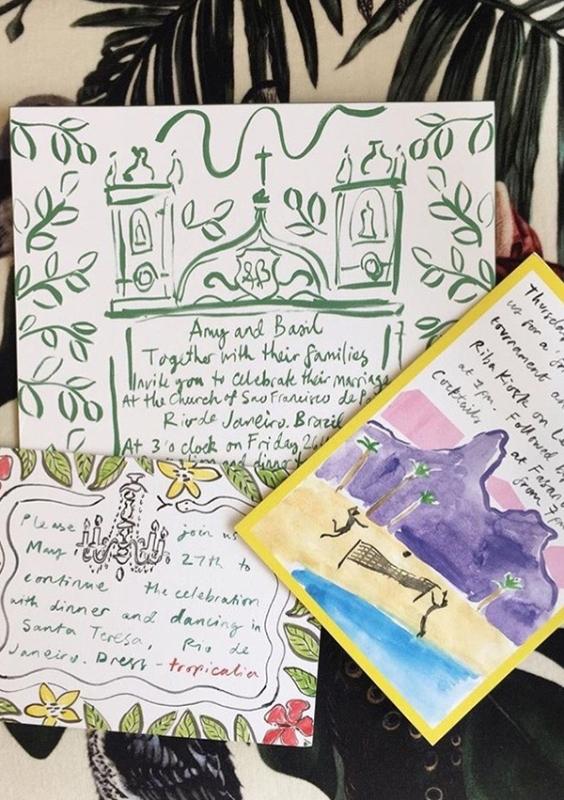 Amy and Basil
Together with their families
Invite you to celebrate their marriage
At the Church of Sao Francisco de
Rio de Janeiro. Brazil
At 3'o clock on Friday
Please join us
May 27th to
continue the celebration
with dinner and dancing in
Santa Teresa, Rio de
Janeiro. Dress - tropicalia
Thursday
us for a
tournament
Riba Kiosk on
at 2pm. Followed
Cocktails at Fasano
from 7pm